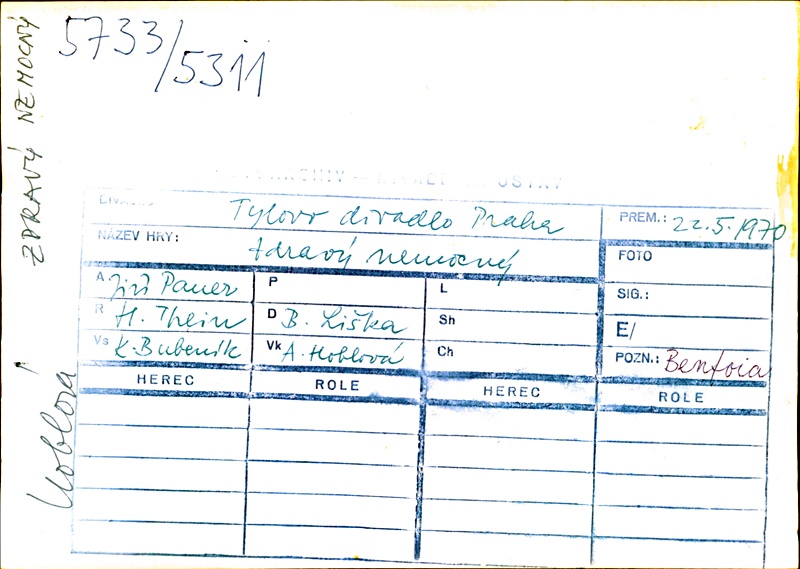 5733/5311
ZDRAVÝ NEMOCNÝ
Tylovo divadlo Praha
PREM.: 22.5.1970
NÁZEV HRY: Zdravý nemocný
FOTO
A Jiří Pauer
P
L
SIG.:
R H. Thein
D B. Liška
Sh
E/
Vs K. Bubeník
Vk A. Hoblová
Ch
POZN.:
HEREC ROLE HEREC ROLE
Hoblová